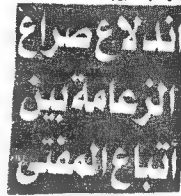 اندلاع صراع
الزعامة بين
أتباع المفتي